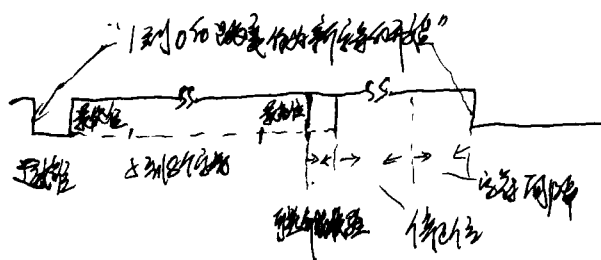 “1到0的跳变作为新字符的开始”
最低位
最高位
起始位
5到8个字符
奇偶校验
停止位
字符间隙